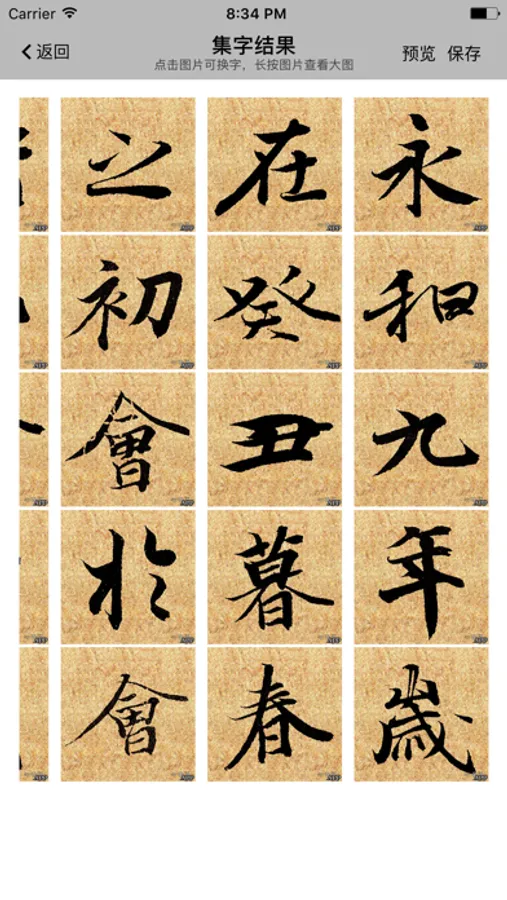 Carrier 8:34 PM
返回 集字结果 预览 保存
点击图片可换字，长按图片查看大图
永和九年歲
在癸丑暮春
之初會於會